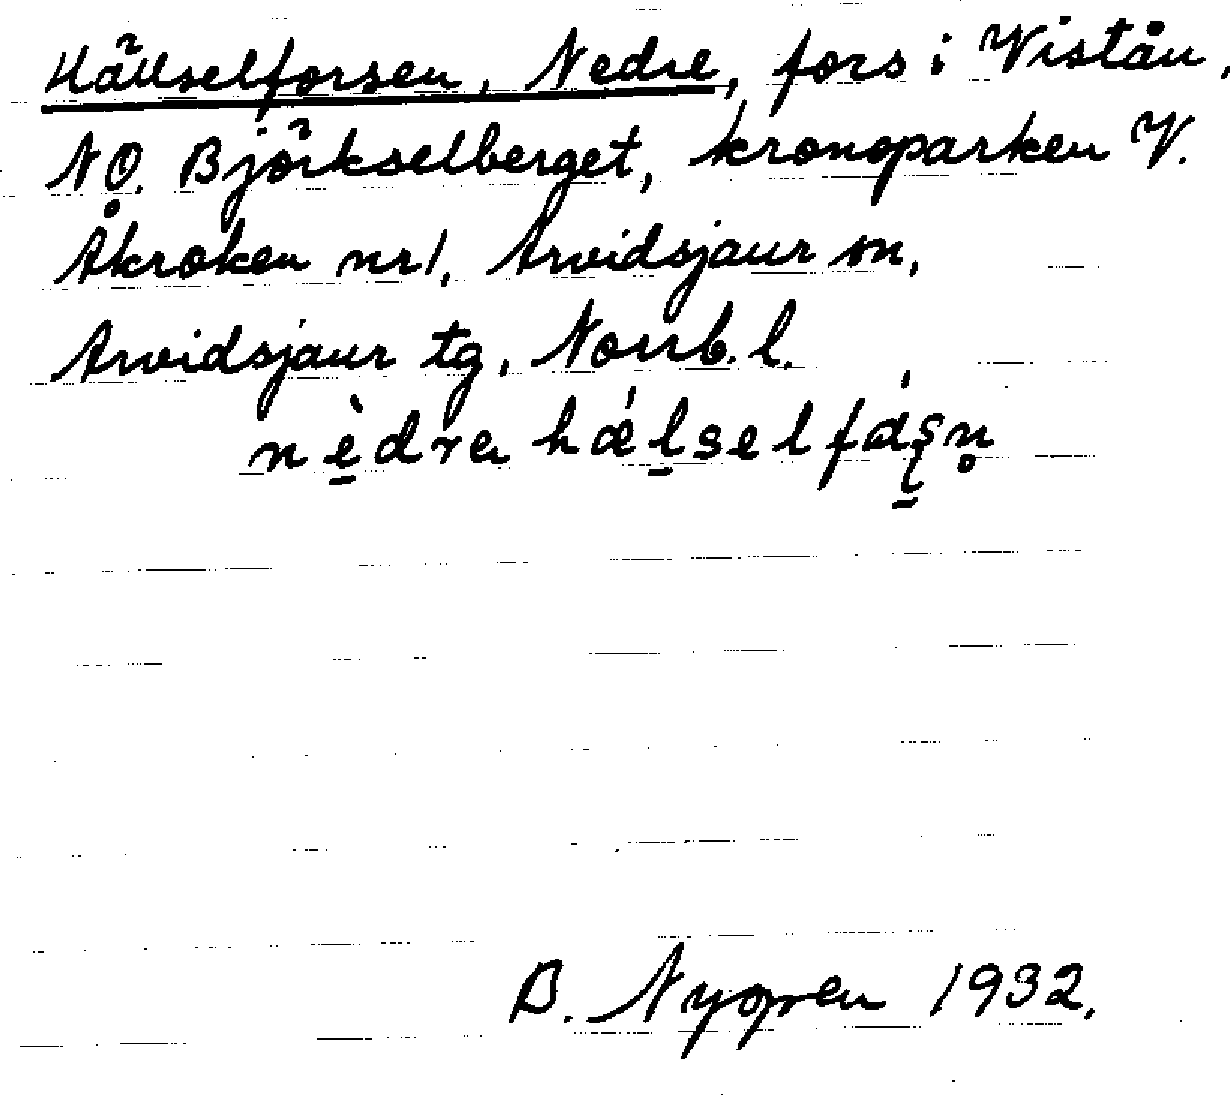 Hällselforsen, Nedre, fors i Vistån,
NO. Björkselberget, kronoparken V.
Åkroken nr1, Arvidsjaur sn,
Arvidsjaur tg, Norrb. l.
nèdra hǽlselfȧ́ʂn̥
B. Nygren 1932.